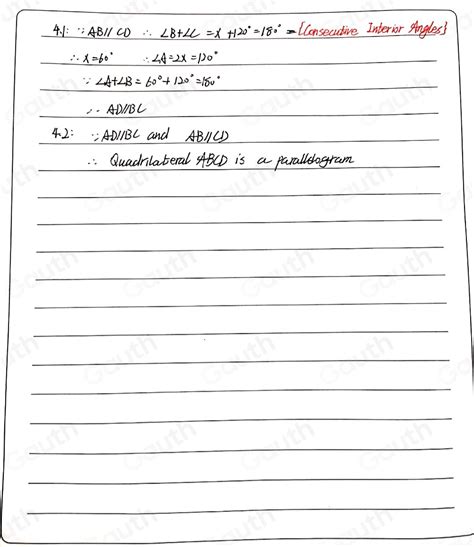 4.1: ∵ AB∥CD ∴ ∠B+∠C = x +120° = 180° = [Consecutive Interior Angles]
∴ x=60° ∴ ∠A=2x=120°
∵ ∠A+∠B = 60°+120°=180°
∴ AD∥BC
4.2: ∵ AD∥BC and AB∥CD
∴ Quadrilateral ABCD is a parallelogram
Gauth